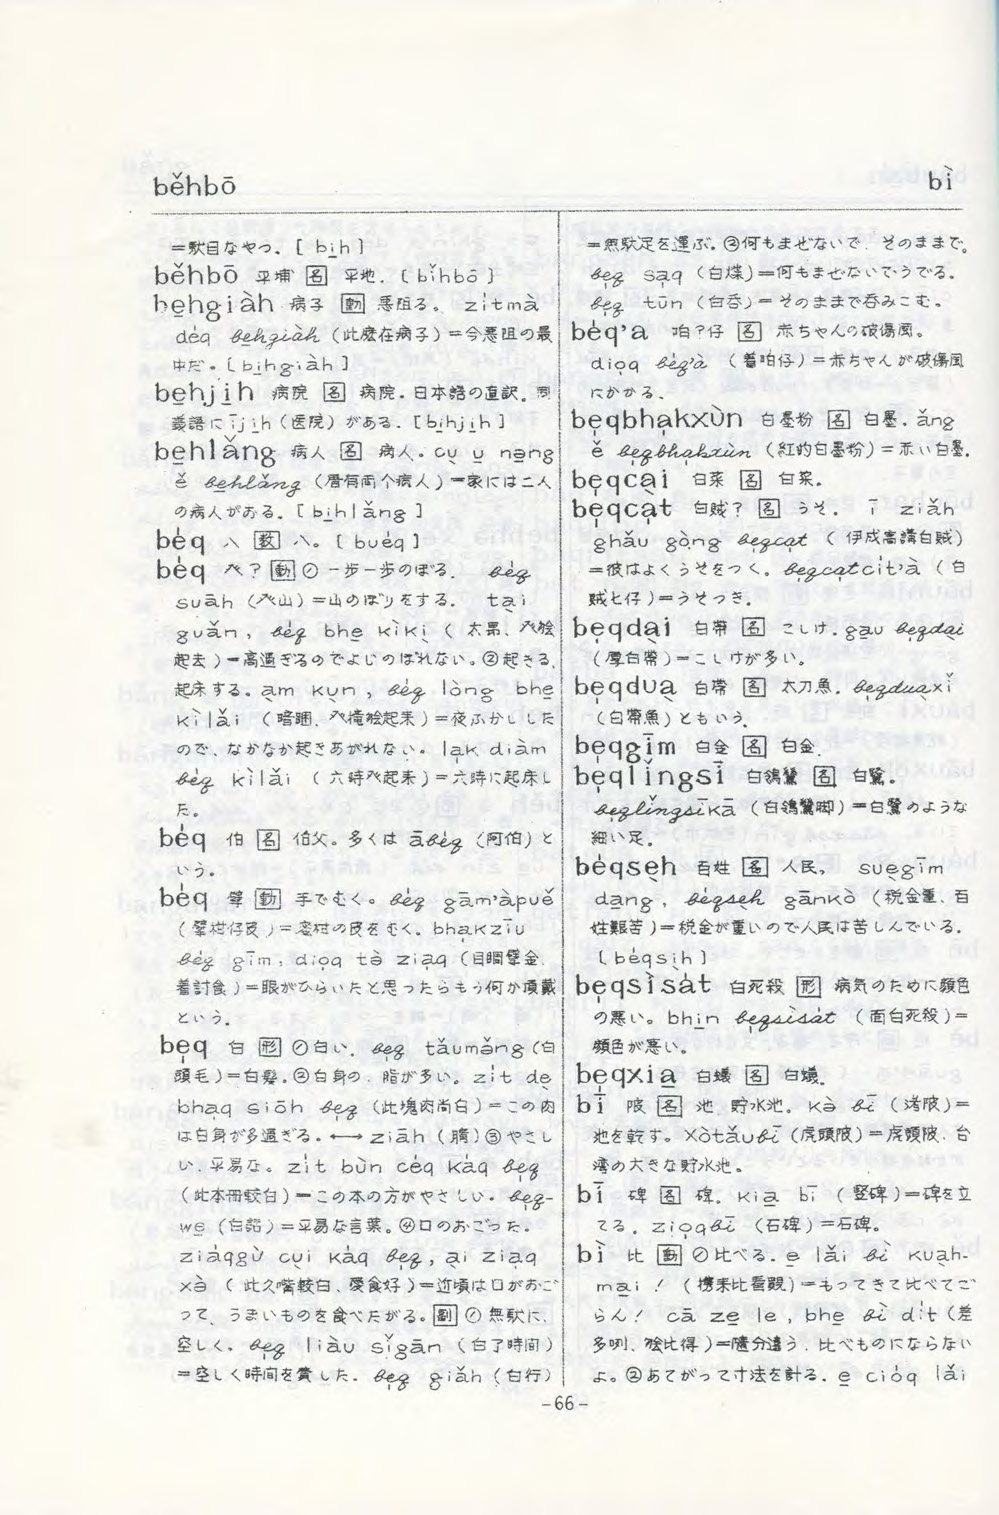 běhbō
bì
=駄目なやつ. [ bi̱h ]
běhbō 平埔 [名] 平地. [ bǐhbō ]
be̱hgiàh 病子 [動] 悪阻る. zi̍tmà
de̍q be̱hgiàh (此麼在病子)=今悪阻の最
中だ. [ bi̱hgiàh ]
be̱hji̱h 病院 [名] 病院. 日本語の直訳. 同
義語に īji̱h (医院) がある. [ bi̱hji̱h ]
be̱hlǎng 病人 [名] 病人. cu̱ u̱ ne̱ng
ě be̱hlǎng (厝有両个病人)=家には二人
の病人がおる. [ bi̱hlǎng ]
béq 八 [数] 八. [ buéq ]
béq ? [動] ① 一歩一歩のぼる. béq
suāh (山)=山のぼりをする. ta̱i
guǎn, béq bhe̱ kìkì (太昻、
起去)=高過ぎるのでよじのぼれない. ②起きる.
起床する. àm kùn, béq lòng bhe̱
kìlǎi (暗睏、起来)=夜ふかしした
ので、なかなか起きあがれない. la̍k diàm
béq kìlǎi (六時起来)=六時に起床し
た.
béq 伯 [名] 伯父. 多くは ābéq (阿伯) と
いう.
béq 擘 [動] 手でむく. béq gām'àpuě
(擘柑仔皮)=蜜柑の皮をむく. bha̍kziū
béq gīm, dio̍q tò zia̍q (目睭擘金、
着討食)=眼がひらいたと思ったらもう何か頂戴
という.
be̍q 白 [形] ①白い. be̍q tǎumǒng (白
頭毛)=白髪. ②白身の. 脂が多い. zi̍t dè
bha̍q siōh be̍q (此塊肉尚白)=この肉
は白身が多過ぎる. ←→ ziāh ③やさし
い. 平易な. zi̍t bùn céq káq be̍q
(此本冊較白)=この本の方がやさしい. be̍q-
we̱ (白話)=平易な言葉. ④口のおごった.
ziáqgù cùi káq be̍q, ài zia̍q
xò (此久嘴較白、愛食好)=近頃は口がおご
って、うまいものを食べたがる. [副] ① 無駄に.
空しく. be̍q liàu sǐgān (白了時間)
=空しく時間を費した. be̍q giǎh (白行)
=無駄足を運ぶ. ②何もまぜないで. そのままで.
be̍q sa̍q (白煠)=何もまぜないでうでる.
be̍q tūn (白呑)=そのままで呑みこむ.
béq'a 咱?仔 [名] 赤ちゃんの破傷風.
dio̍q béq'à (着咱仔)=赤ちゃんが破傷風
にかかる.
be̍qbha̍kxùn 白墨粉 [名] 白墨. ǎng
ě be̍qbha̍kxùn (紅的白墨粉)=赤い白墨.
be̍qcài 白菜 [名] 白菜.
be̍qca̍t 白賊? [名] うそ. ī ziǎh
ghǎu gòng be̍qca̍t (伊成高講白賊)
=彼はよくうそをつく. be̍qca̍tcít'à (白
賊七仔)=うそつき.
be̍qdài 白帯 [名] こしけ. ga̱u be̍qdài
(厚白帯)=こしけが多い.
be̍qdùa 白帯 [名] 太刀魚. be̍qdùaxǐ
(白帯魚) ともいう.
be̍qgīm 白金 [名] 白金.
be̍qlǐngsī 白鴒鷥 [名] 白鷺.
be̍qlǐngsīkā (白鴒鷥脚)=白鷺のような
細い足.
béqsèh 百姓 [名] 人民. suègīm
da̱ng, béqsèh gānkò (税金重、百
姓艱苦)=税金が重いので人民は苦しんでいる.
[ béqsìh ]
be̍qsìsát 白死殺 [形] 病気のために顔色
の悪い. bhi̱n be̍qsìsát (面白死殺)=
顔色が悪い.
be̍qxia̱ 白蟻 [名] 白蟻.
bī 陂 [名] 池. 貯水池. kò bī (洘陂)=
池を乾す. Xòtǎubī (虎頭陂)=虎頭陂. 台
湾の大きな貯水池.
bī 碑 [名] 碑. kia̱ bī (竪碑)=碑を立
てる. zio̍qbī (石碑)=石碑.
bì 比 [動] ①比べる. e̱ lǎi bì kùah-
ma̱i! (携来比看覓)=もってきて比べてご
らん! cā ze̱ le, bhe̱ bì di̍t (差
多咧、比得)=随分違う. 比べものにならない
よ. ②あてがって寸法を計る. e̱ cióq lǎi
-66-